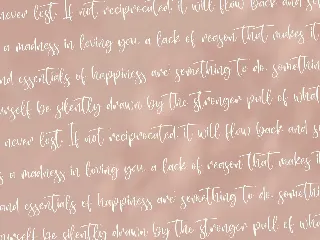 never lost. If not reciprocated, it will flow back and
a madness in loving you, a lack of reason that makes it
and essentials of happiness are something to do, something
urself be silently drawn by the stronger pull of what
never lost. If not reciprocated, it will flow back and
a madness in loving you, a lack of reason that makes it
and essentials of happiness are something to do, something
urself be silently drawn by the stronger pull of what